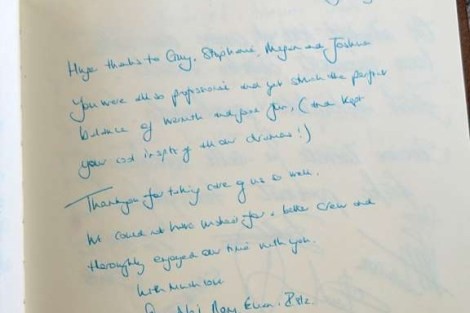 Huge thanks to Guy, Stephanie, Megan and Joshua
You were all so professional and yet struck the perfect
balance of warmth and fun, (and kept
your cool inspite of all our dramas!)
Thankyou for taking care of us so well.
We could not have wished for a better crew and
thoroughly enjoyed our time with you.
With much love